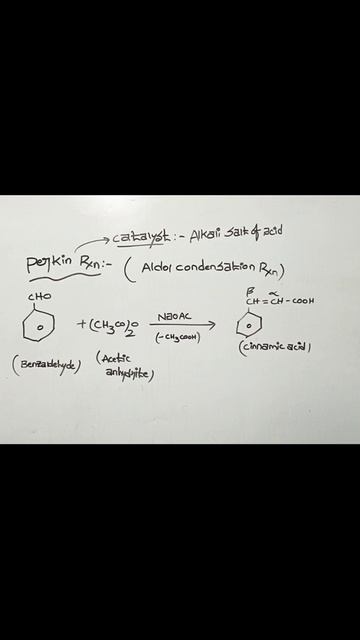 catalyst :- Alkali salt of acid
Perkin Rxn :- (Aldol condensation Rxn)
CHO
+ (CH3CO)2O
NaOAc
(-CH3COOH)
β α
CH = CH - COOH
(Benzaldehyde)
(Acetic
anhydrite)
(cinnamic acid)